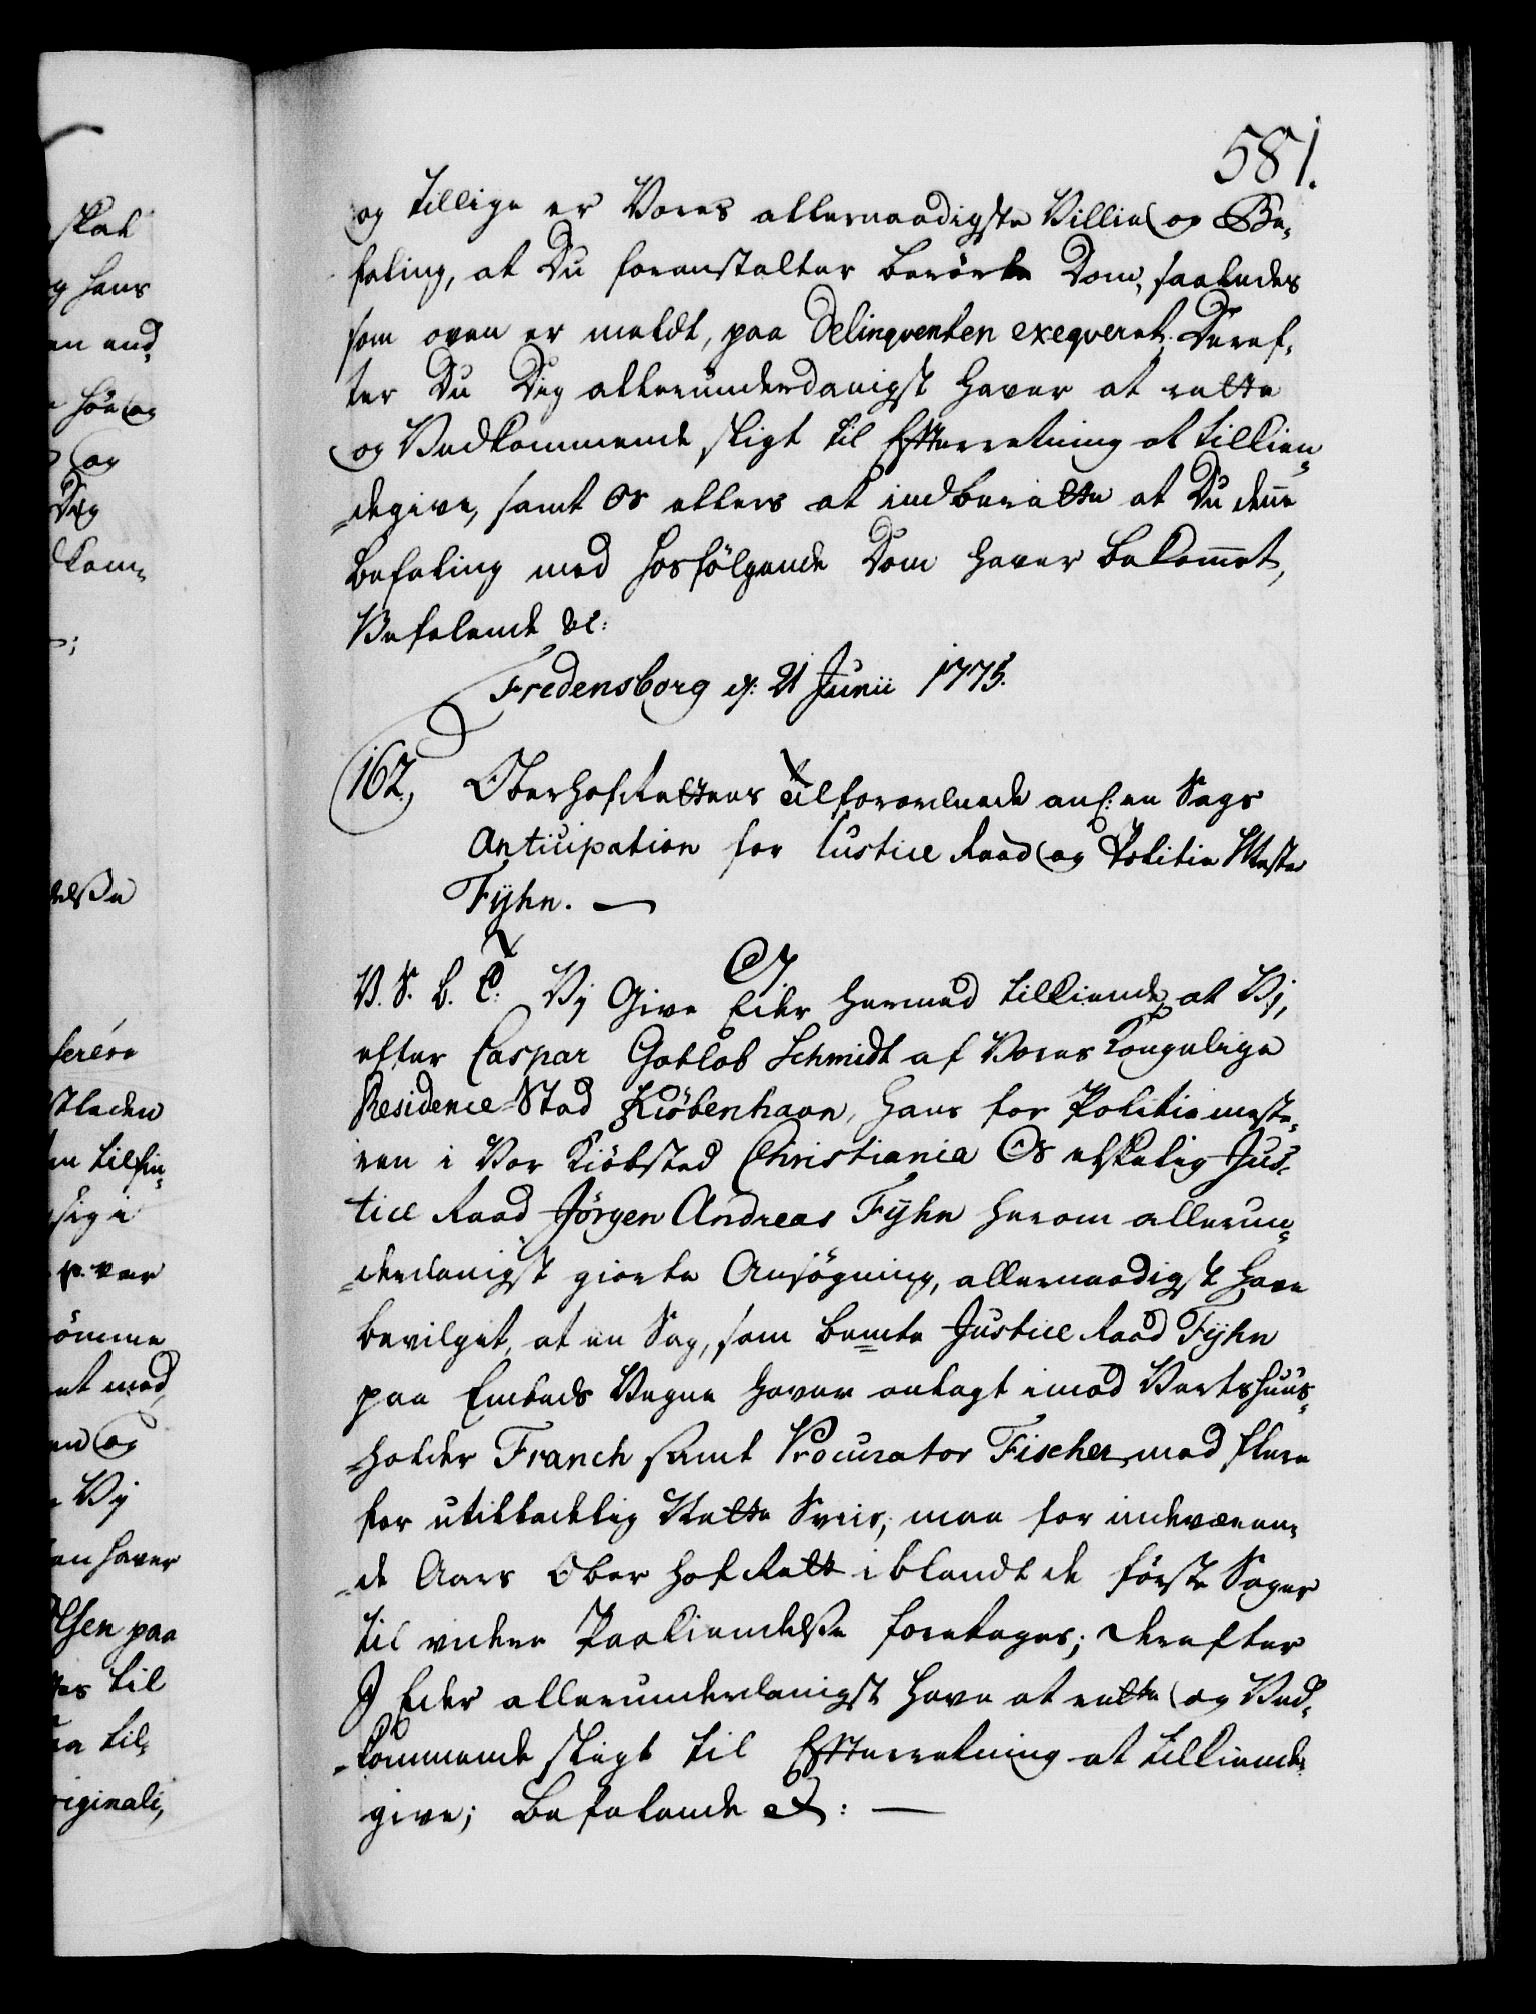 581.
og tillige er Vores allernaadigste Villie og Be¬
faling, at Du foranstalter berørte Dom, saaledes
som oven er meldt, paa Delinqventen exeqveret. Deref¬
ter Du Dig allerunderdanigst haver at rette
og Vedkommende sligt til Efterretning at tilkien¬
degive, samt Os ellers at indberette at Du denne
Befaling med hosfölgende Dom haver bekommet,
Befalende &c:
Fredensborg d: 21 Junii 1775.
162, Oberhofrettens tilforordnede anl: en Sags
Anticipation for Justice Raad og Politie Mester
Fÿhn. —
C7.
V. S. G. T. Vj Give Eder hermed tilkiende, at Vj,
efter Caspar Gotlob Schmidt af Vores Kongelige
Residence-Stad Kiöbenhavn, hans for Politiemeste¬
ren i Vor Kiöbsted Christiania Os elskelig Jus¬
tice Raad Jörgen Andreas Fÿhn herom allerun¬
derdanigst giorte Ansögning, allernaadigst have
bevilget, at en Sag, som bemte Justice Raad Fÿhn
paa Embeds Vegne haver anlagt imod Vertshuus¬
holder Franch samt Procurator Fischer med flere
for utilladelig Natte Sviir, maa for indeværen¬
de Aars Ober Hof Rett iblandt de förste Sager
til videre Paakiendelse foretages; Derefter
I Eder allerunderdanigst have at rette og Ved¬
kommende sligt til Efterretning at tilkiende
give; Befalende &c: —